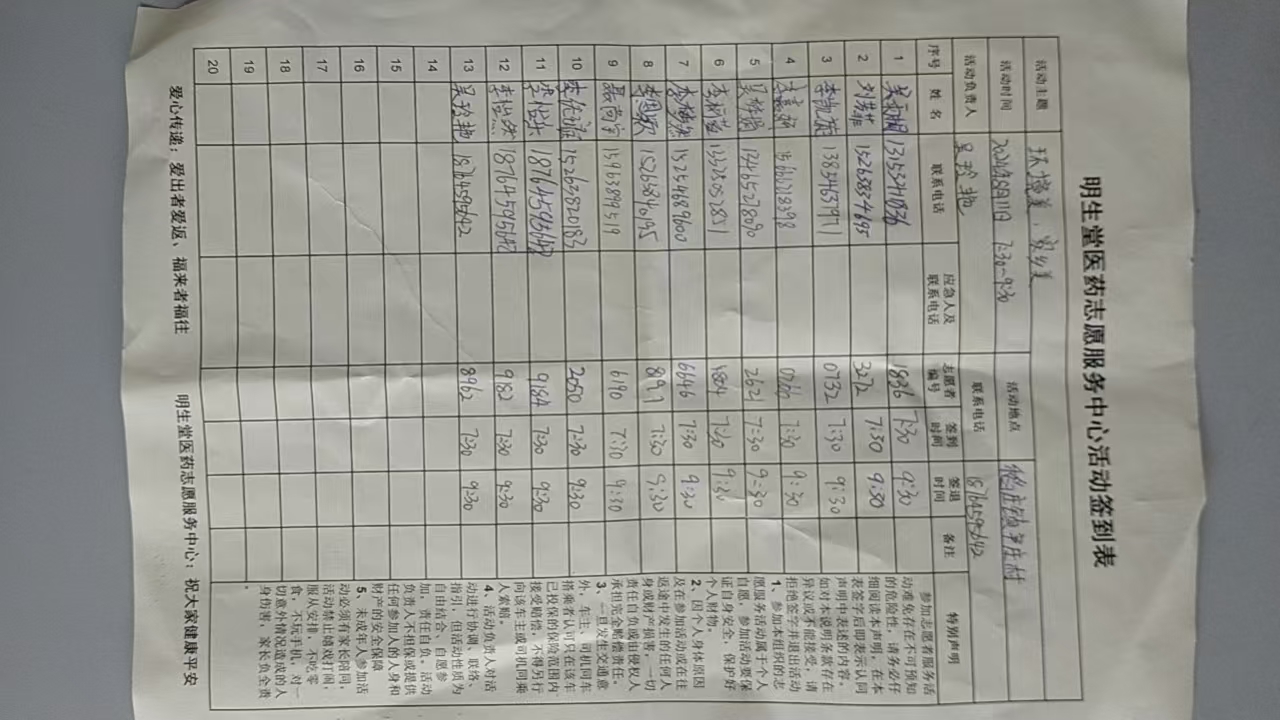 明生堂医药志愿服务中心活动签到表
活动主题 环境美，家乡美
活动时间 2024年8月11日 7:30~9:30 活动地点
活动负责人 吴玲艳 联系电话 18764595642
序号 姓名 联系电话 应急人及联系电话 志愿者编号 签到时间 签退时间 备注 特别声明
1 1836 7:30 9:30
2 刘芳菲 15263834695 3272 7:30 9:30
3 李凯 0732 7:30 9:30
4 7:30 9:30
5 13465278090 2621 7:30 9:30
6 13325052851 4804 7:30 9:30
7 15254689600 6646 7:30 9:30
8 15263840195 7:30 9:30
9 15963894519 6190 7:30 9:30
10 15263820183 2050 7:30 9:30
11 李怡乐 9184 7:30 9:30
12 李怡然 18764595642 9182 7:30 9:30
13 吴玲艳 18764595642 8962 7:30 9:30
14
15
16
17
18
19
20
参加志愿者服务活
动难免存在不可预知
的危险性，请务必仔
细阅读本声明，在本
表签字后即表示认同
声明中表述的内容。
如对本说明条款存在
异议或不能接受，请
拒绝签字并退出活动
1、参加本组织的志
愿服务活动属于个人
自愿，参加活动要保
证自身安全，保护好
个人财物。
2、因个人身体原因
及在参加活动或在往
返途中发生的任何人
身或财产损害，一切
责任自负或由侵权人
承担完全赔偿责任。
3、一旦发生交通意
外，车主、司机同车
搭乘者认可只在该车
已投保的保险范围内
接受赔偿，不得另行
向该车主或司机同乘
人索赔。
4、活动负责人对活
动进行协调、联络、
指引，但活动性质为
自由结合、自愿参
加，责任自负。活动
负责人不担保或提供
任何参加人的人身和
财产的安全保障
5、未成年人参加活
动必须有家长陪同，
活动禁止嬉戏打闹，
服从安排，不吃零
食，不玩手机，对一
切意外情况造成的人
身伤害，家长负全责
。
爱心传递；爱出者爱返、福来者福往 明生堂医药志愿服务中心：祝大家健康平安